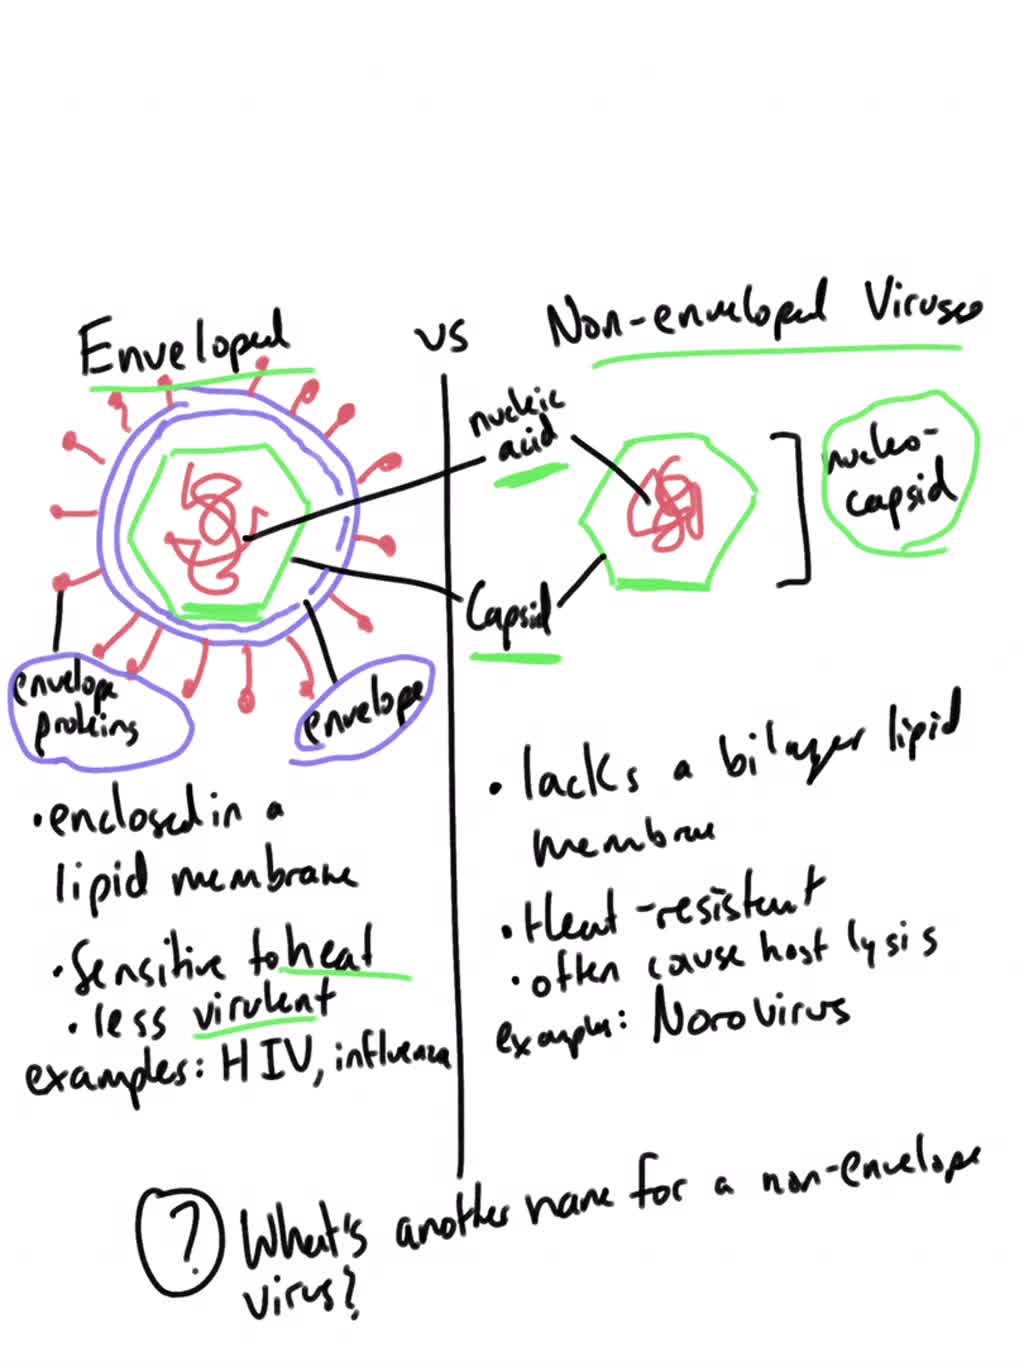 Enveloped
vs
Non-enveloped Viruses
nucleic
acid
nucleo-
capsid
Capsid
envelope
proteins
envelope
• enclosed in a
lipid membrane
• Sensitive to heat
• less virulent
examples: HIV, influenza
• lacks a bilayer lipid
membrane
• Heat-resistant
• often cause host lysis
examples: Norovirus
? What's another name for a non-envelope
virus?